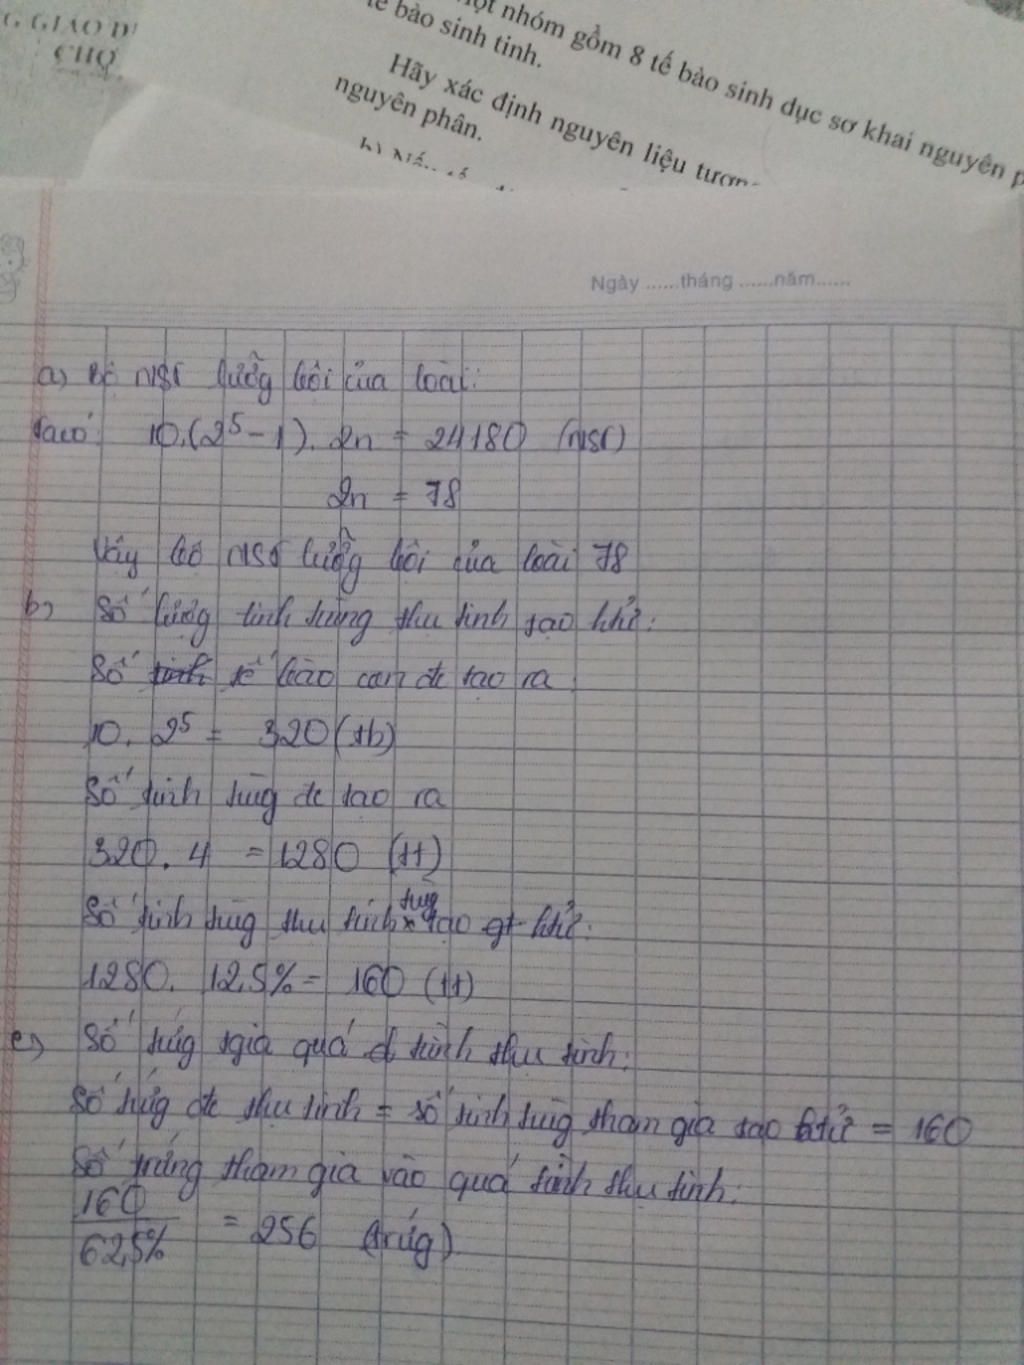 G GIÁO D
CHỌ
một nhóm gồm 8 tế bào sinh dục sơ khai nguyên p
tế bào sinh tinh.
Hãy xác định nguyên liệu tương
nguyên phân.
Ngày ......tháng ......năm......
a) Bộ NST lưỡng bội của loài:
Ta có: 10.(2⁵-1). 2n = 24180 (NST)
2n = 78
Vậy bộ NST lưỡng bội của loài 78
b) Số lượng tinh trùng thụ tinh tạo htử:
Số tế bào con đc tạo ra
10. 2⁵ = 320 (tb)
Số tinh trùg đc tạo ra
320. 4 = 1280 (tt)
Số tinh trùg thụ tinh tạo htử:
1280. 12,5% = 160 (tt)
c) Số trứg tgia quá trình thụ tinh:
Số trứg đc thụ tinh = số tinh trùg tham gia tạo htử = 160
Số trứng tham gia vào quá trình thụ tinh:
160
62,5% = 256 (trứg)